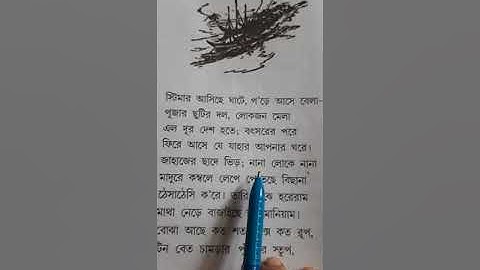 স্টিমার আসিছে ঘাটে, প'ড়ে আসে বেলা-
পূজার ছুটির দল, লোকজন মেলা
এল দূর দেশ হতে; বৎসরের পরে
ফিরে আসে যে যাহার আপনার ঘরে।
জাহাজের ছাদে ভিড়; নানা লোকে নানা
মাদুরে কম্বলে লেপে বিছানা
ঠেসাঠেসি ক'রে।
মাথা নেড়ে
বোঝা আছে কত শত কত রূপ,
টিন বেত চামড়ার স্তূপ,